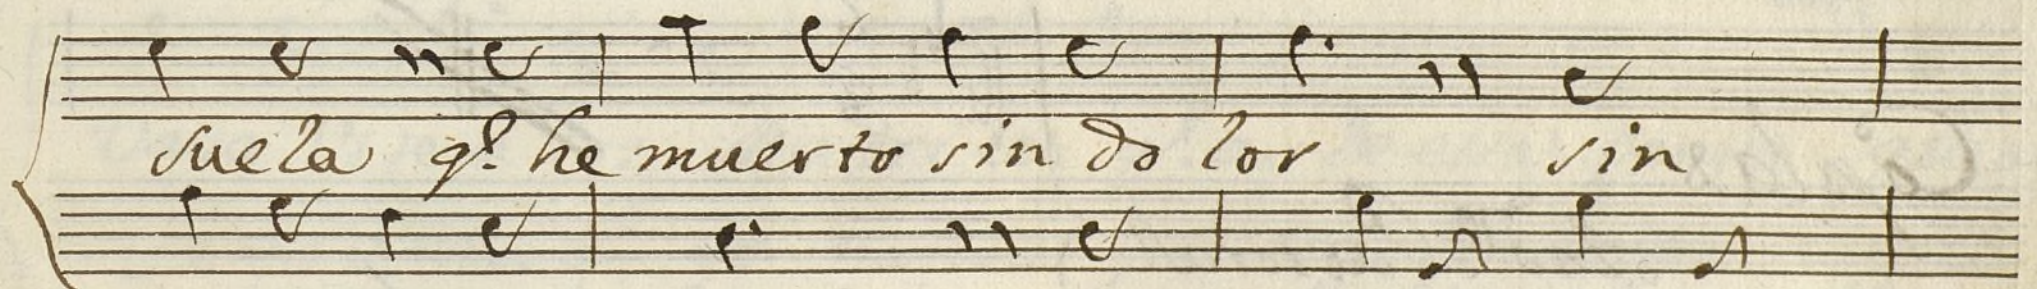 suela q.e he muerto sin do lor sin